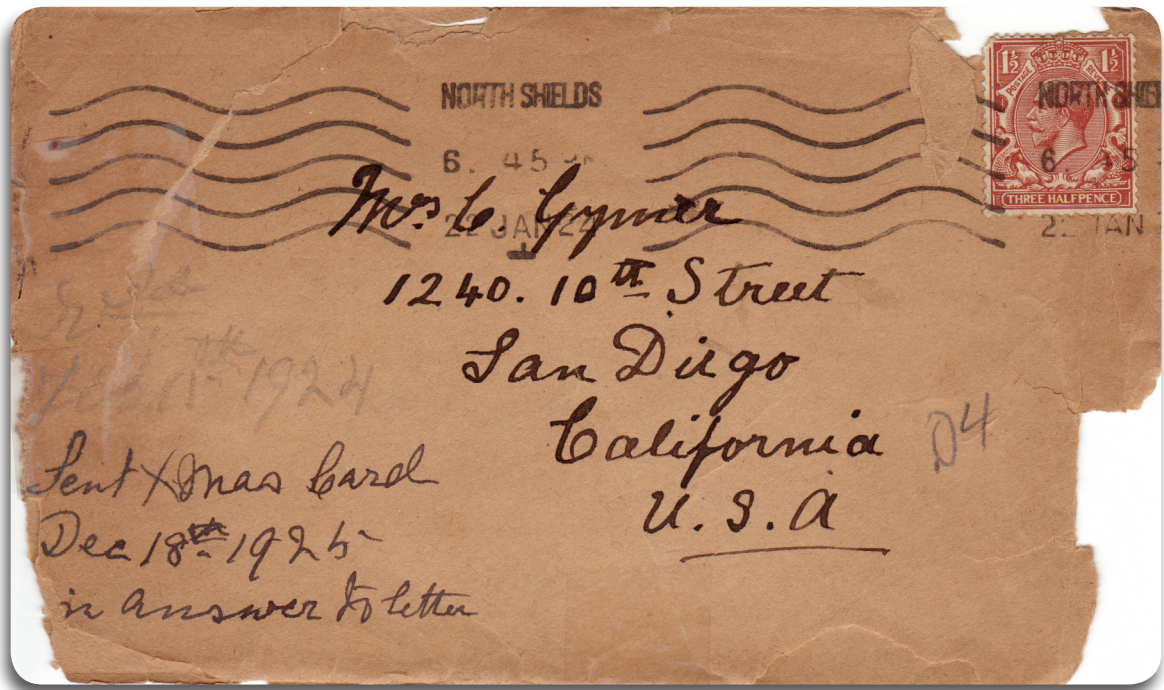 NORTH SHIELDS
6. 45 PM
22 JAN 24
1½ 1½
POSTAGE REVENUE
THREE HALFPENCE
NORTH SHIE
6 45
22 JAN
Mrs C. Gymer
1240. 10th Street
San Diego
California
U.S.A
D4
1924
Sent Xmas Card
Dec 18th 1925
in answer to letter